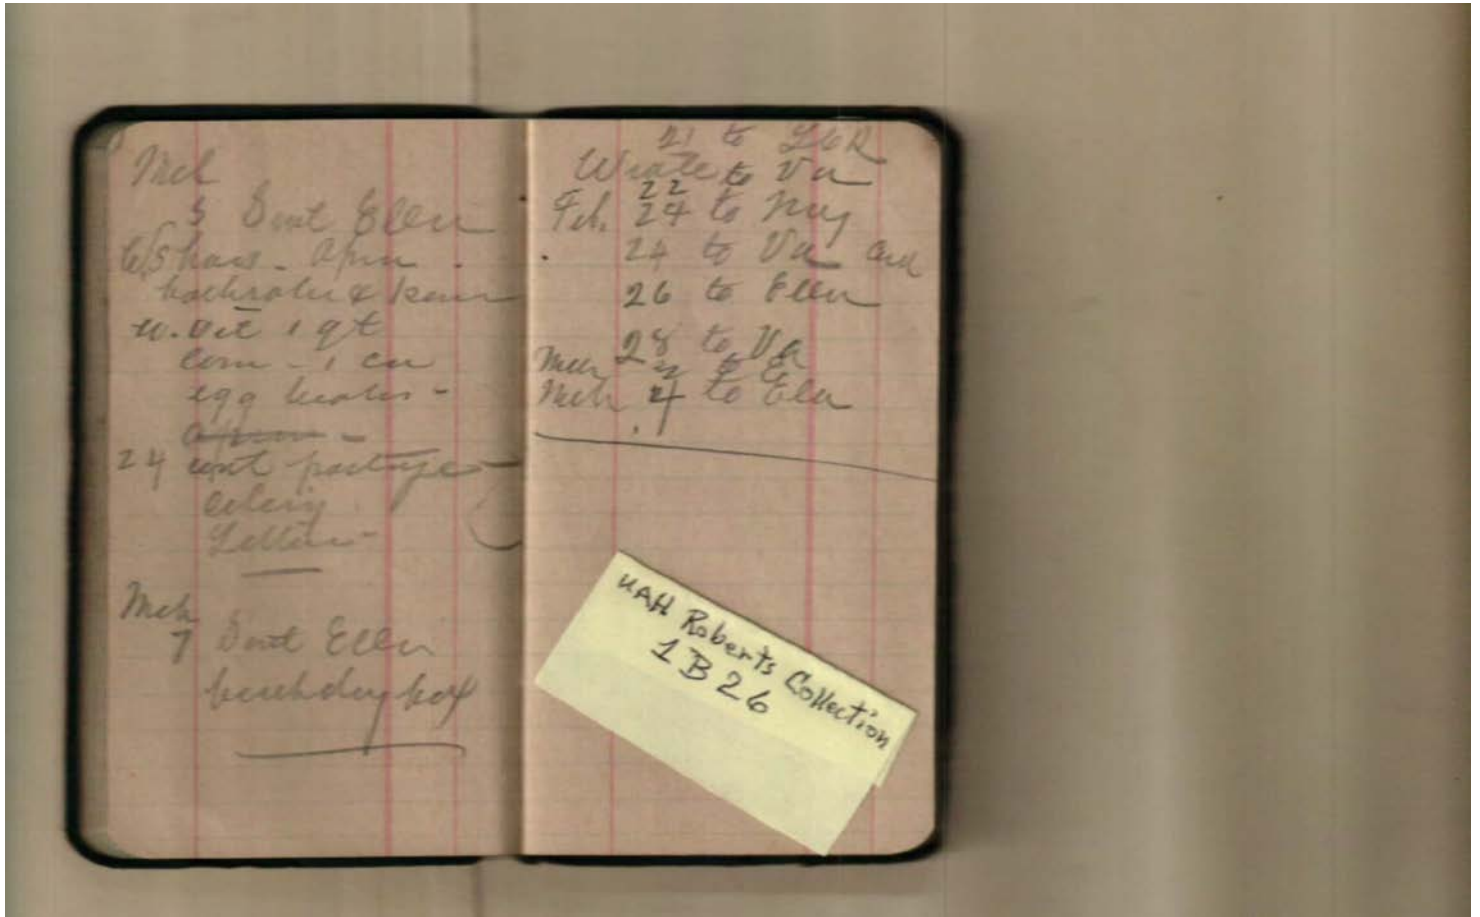 Mch
5 Sent Ellen
bathrobe &
1 qt
corn - 1 can
egg beater -
24 cent postage -
celery
Letter -
Mch
7 Sent Ellen
birthday box
21 to
Wrote to Va
22
Feb. 24 to
24 to Va card
26 to Ellen
28 to Va
Mch to E
Mch 4 to Ellen
UAH Roberts Collection
1B26